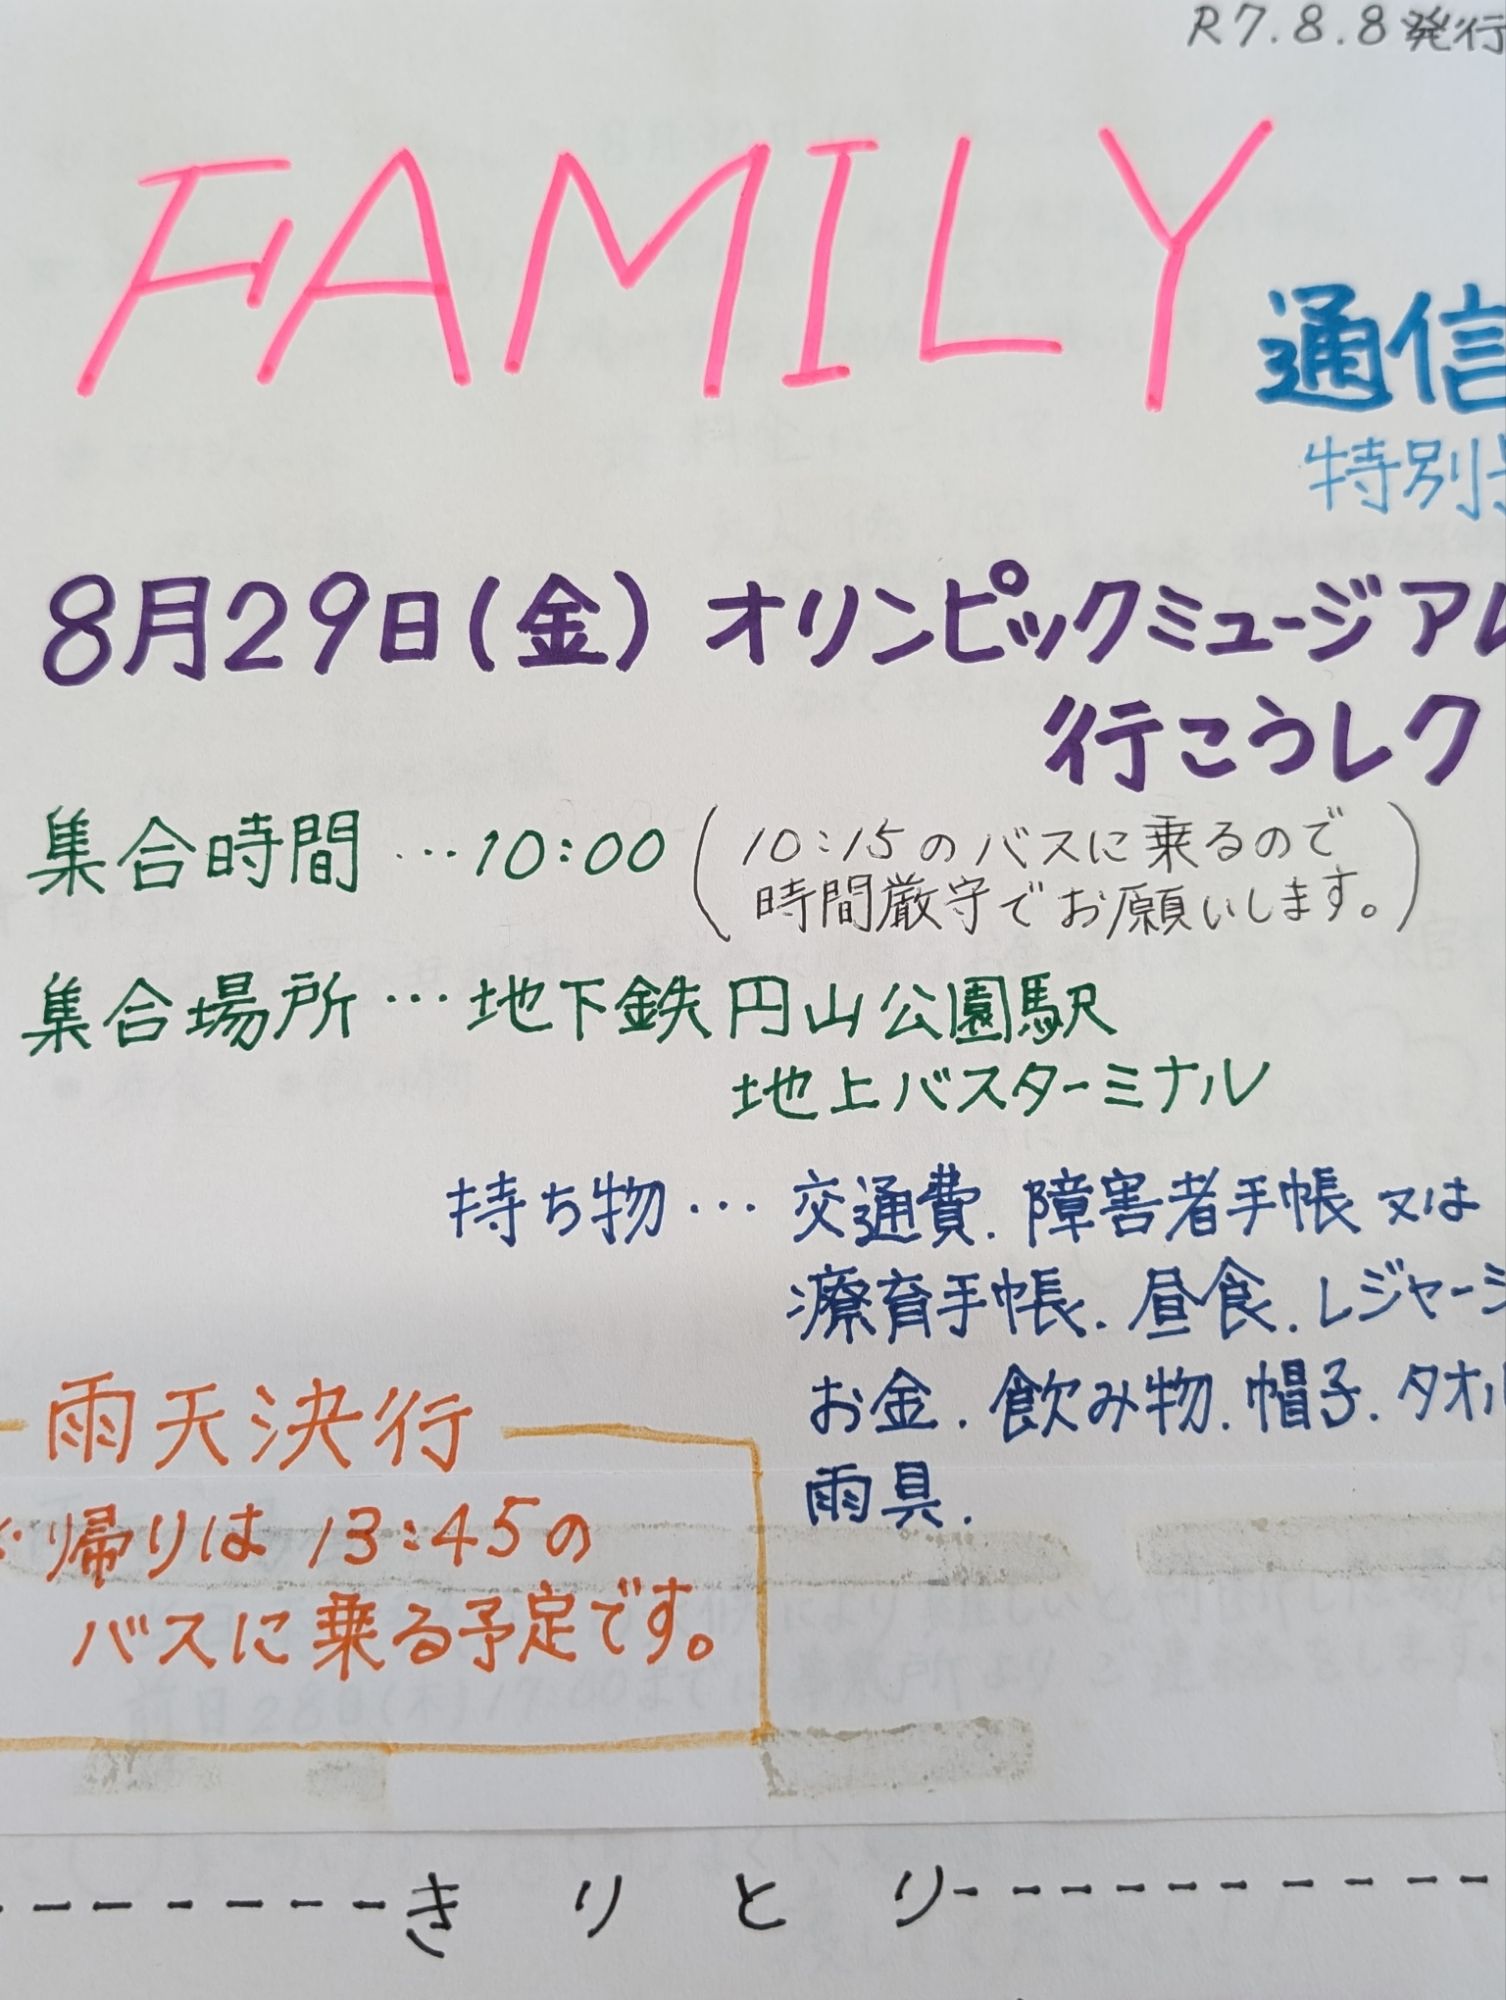 R7.8.8発行
FAMILY
通信
特別
8月29日(金) オリンピックミュージアム
行こうレク
集合時間…10:00(10:15のバスに乗るので
時間厳守でお願いします。)
集合場所…地下鉄 円山公園駅
地上バスターミナル
持ち物…交通費.障害者手帳 又は
療育手帳.昼食.レジャーシ
お金.飲み物.帽子.タオル
雨具.
雨天決行
※帰りは 13:45の
バスに乗る予定です。
前日28日(木)17:00までに事業所より ご連絡をします。
きりとり